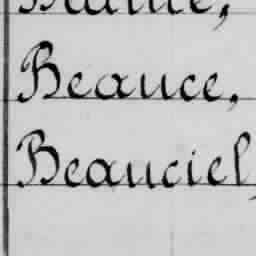 Beauce,
Beauciel,